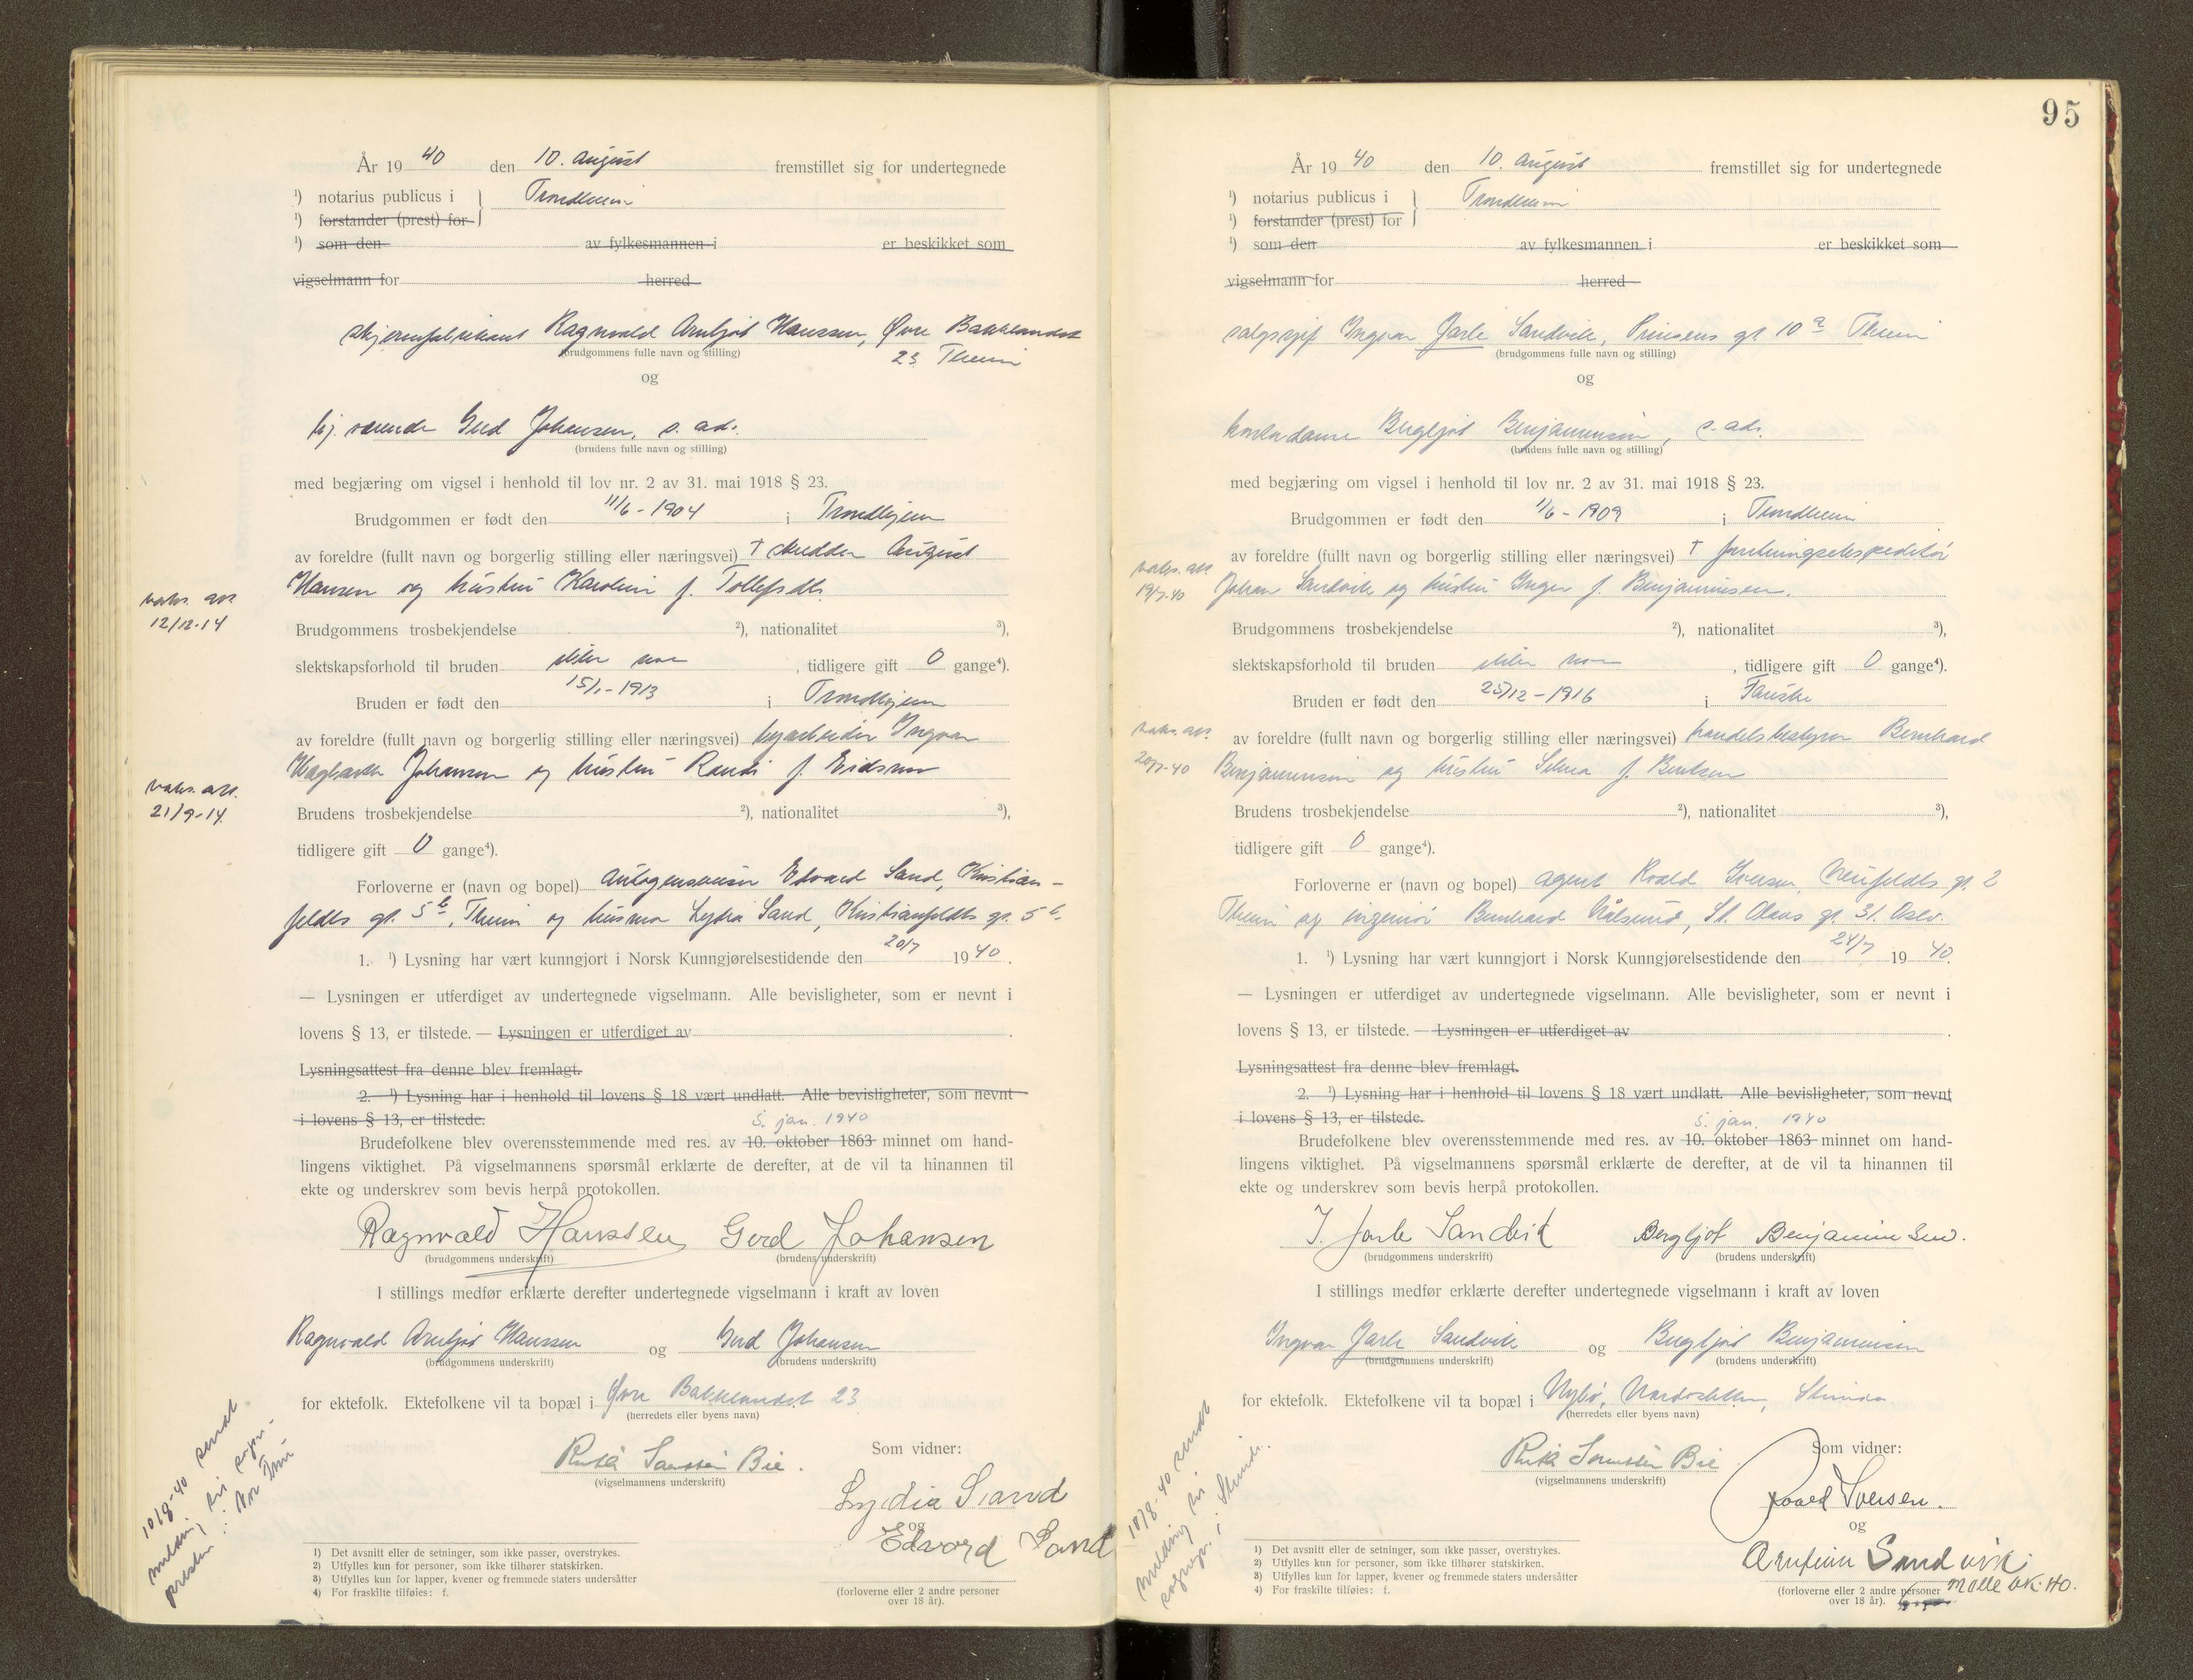 År 19 40 den 10. august fremstillet sig for undertegnede
¹) notarius publicus i } Trondheim
¹) forstander (prest) for
¹) som den av fylkesmannen i er beskikket som
vigselmann for herred
skjermfabrikant Ragnvald Arnljot Hanssen, Øvre Bakklandet
(brudgommens fulle navn og stilling) 23 Theim
og
hj. værende Gerd Johansen, s. ads.
(brudens fulle navn og stilling)
med begjæring om vigsel i henhold til lov nr. 2 av 31. mai 1918 § 23.
Brudgommen er født den 11/6 - 1904 i Trondhjem
av foreldre (fullt navn og borgerlig stilling eller næringsvei) † skredder August
Hansen og hustru Karoline f.
vaks. att.
12/12-14
Brudgommens trosbekjendelse ²), nationalitet ³),
slektskapsforhold til bruden , tidligere gift 0 gange⁴).
Bruden er født den 15/1 - 1913 i Trondhjem
av foreldre (fullt navn og borgerlig stilling eller næringsvei) Ingvar
Johansen og hustru Randi f. Eidsmo
vaks. att.
21/9-14.
Brudens trosbekjendelse ²), nationalitet ³),
tidligere gift 0 gange⁴).
Forloverne er (navn og bopel) autogensveiser Edvard Sand, Kristian-
feldts gt. 5 b, Theim og husmor Lydia Sand, Kristianfeldts gt. 5 b.
1. ¹) Lysning har vært kunngjort i Norsk Kunngjørelsestidende den 20/7 19 40.
— Lysningen er utferdiget av undertegnede vigselmann. Alle bevisligheter, som er nevnt i
lovens § 13, er tilstede. — Lysningen er utferdiget av .
Lysningsattest fra denne blev fremlagt.
2. ¹) Lysning har i henhold til lovens § 18 vært undlatt. Alle bevisligheter, som nevnt
i lovens § 13, er tilstede. 5. jan. 1940
Brudefolkene blev overensstemmende med res. av 10. oktober 1863 minnet om hand-
lingens viktighet. På vigselmannens spørsmål erklærte de derefter, at de vil ta hinannen til
ekte og underskrev som bevis herpå protokollen.
Ragnvald Hanssen Gerd Johansen
(brudgommens underskrift) (brudens underskrift)
I stillings medfør erklærte derefter undertegnede vigselmann i kraft av loven
Ragnvald Arnljot Hanssen og Gerd Johansen
(brudgommens underskrift) (brudens underskrift)
for ektefolk. Ektefolkene vil ta bopæl i Øvre Bakklandet 23
(herredets eller byens navn)
Som vidner:
Bie.
(vigselmannens underskrift)
Lydia Sand
og
Edvard Sand
(forloverne eller 2 andre personer
over 18 år).
10/8-40 sendt
melding til sogne-
presten i
1) Det avsnitt eller de setninger, som ikke passer, overstrykes.
2) Utfylles kun for personer, som ikke tilhører statskirken.
3) Utfylles kun for lapper, kvener og fremmede staters undersåtter
4) For fraskilte tilføies: f.
95
År 19 40 den 10. august fremstillet sig for undertegnede
¹) notarius publicus i } Trondheim
¹) forstander (prest) for
¹) som den av fylkesmannen i er beskikket som
vigselmann for herred
salgssjef Ingvar Jarle Sandvik, Prinsens gt 10 a Theim
(brudgommens fulle navn og stilling)
og
kontordame Bergljot Benjaminsen, s. ads.
(brudens fulle navn og stilling)
med begjæring om vigsel i henhold til lov nr. 2 av 31. mai 1918 § 23.
Brudgommen er født den 1/6 - 1909 i Trondheim
av foreldre (fullt navn og borgerlig stilling eller næringsvei) †
Johan Sandvik og hustru Inger f. Benjaminsen.
vaks. att.
19/7-40
Brudgommens trosbekjendelse ²), nationalitet ³),
slektskapsforhold til bruden , tidligere gift 0 gange⁴).
Bruden er født den 25/12 - 1916 i Fauske
av foreldre (fullt navn og borgerlig stilling eller næringsvei) handelsbestyrer Bernhard
Benjaminsen og hustru Selma f. Bentsen
vaks. att.
20/7-40
Brudens trosbekjendelse ²), nationalitet ³),
tidligere gift 0 gange⁴).
Forloverne er (navn og bopel) agent Roald Iversen, gt. 2
Theim og ingeniør Bernhard Ålsund, St. Olavs gt. 31. Oslo.
1. ¹) Lysning har vært kunngjort i Norsk Kunngjørelsestidende den 24/7 19 40.
— Lysningen er utferdiget av undertegnede vigselmann. Alle bevisligheter, som er nevnt i
lovens § 13, er tilstede. — Lysningen er utferdiget av .
Lysningsattest fra denne blev fremlagt.
2. ¹) Lysning har i henhold til lovens § 18 vært undlatt. Alle bevisligheter, som nevnt
i lovens § 13, er tilstede. 5. jan. 1940
Brudefolkene blev overensstemmende med res. av 10. oktober 1863 minnet om hand-
lingens viktighet. På vigselmannens spørsmål erklærte de derefter, at de vil ta hinannen til
ekte og underskrev som bevis herpå protokollen.
I. Jarle Sandvik Bergljot Benjaminsen.
(brudgommens underskrift) (brudens underskrift)
I stillings medfør erklærte derefter undertegnede vigselmann i kraft av loven
Ingvar Jarle Sandvik og Bergljot Benjaminsen
(brudgommens underskrift) (brudens underskrift)
for ektefolk. Ektefolkene vil ta bopæl i Nybo, Nardosletten, Strinda
(herredets eller byens navn)
Som vidner:
Bie
(vigselmannens underskrift)
Roald Iversen.
og
Sandvik.
(forloverne eller 2 andre personer
over 18 år).
10/8-40 sendt
melding til
sognepr. i Strinda.
1) Det avsnitt eller de setninger, som ikke passer, overstrykes.
2) Utfylles kun for personer, som ikke tilhører statskirken.
3) Utfylles kun for lapper, kvener og fremmede staters undersåtter
4) For fraskilte tilføies: f.